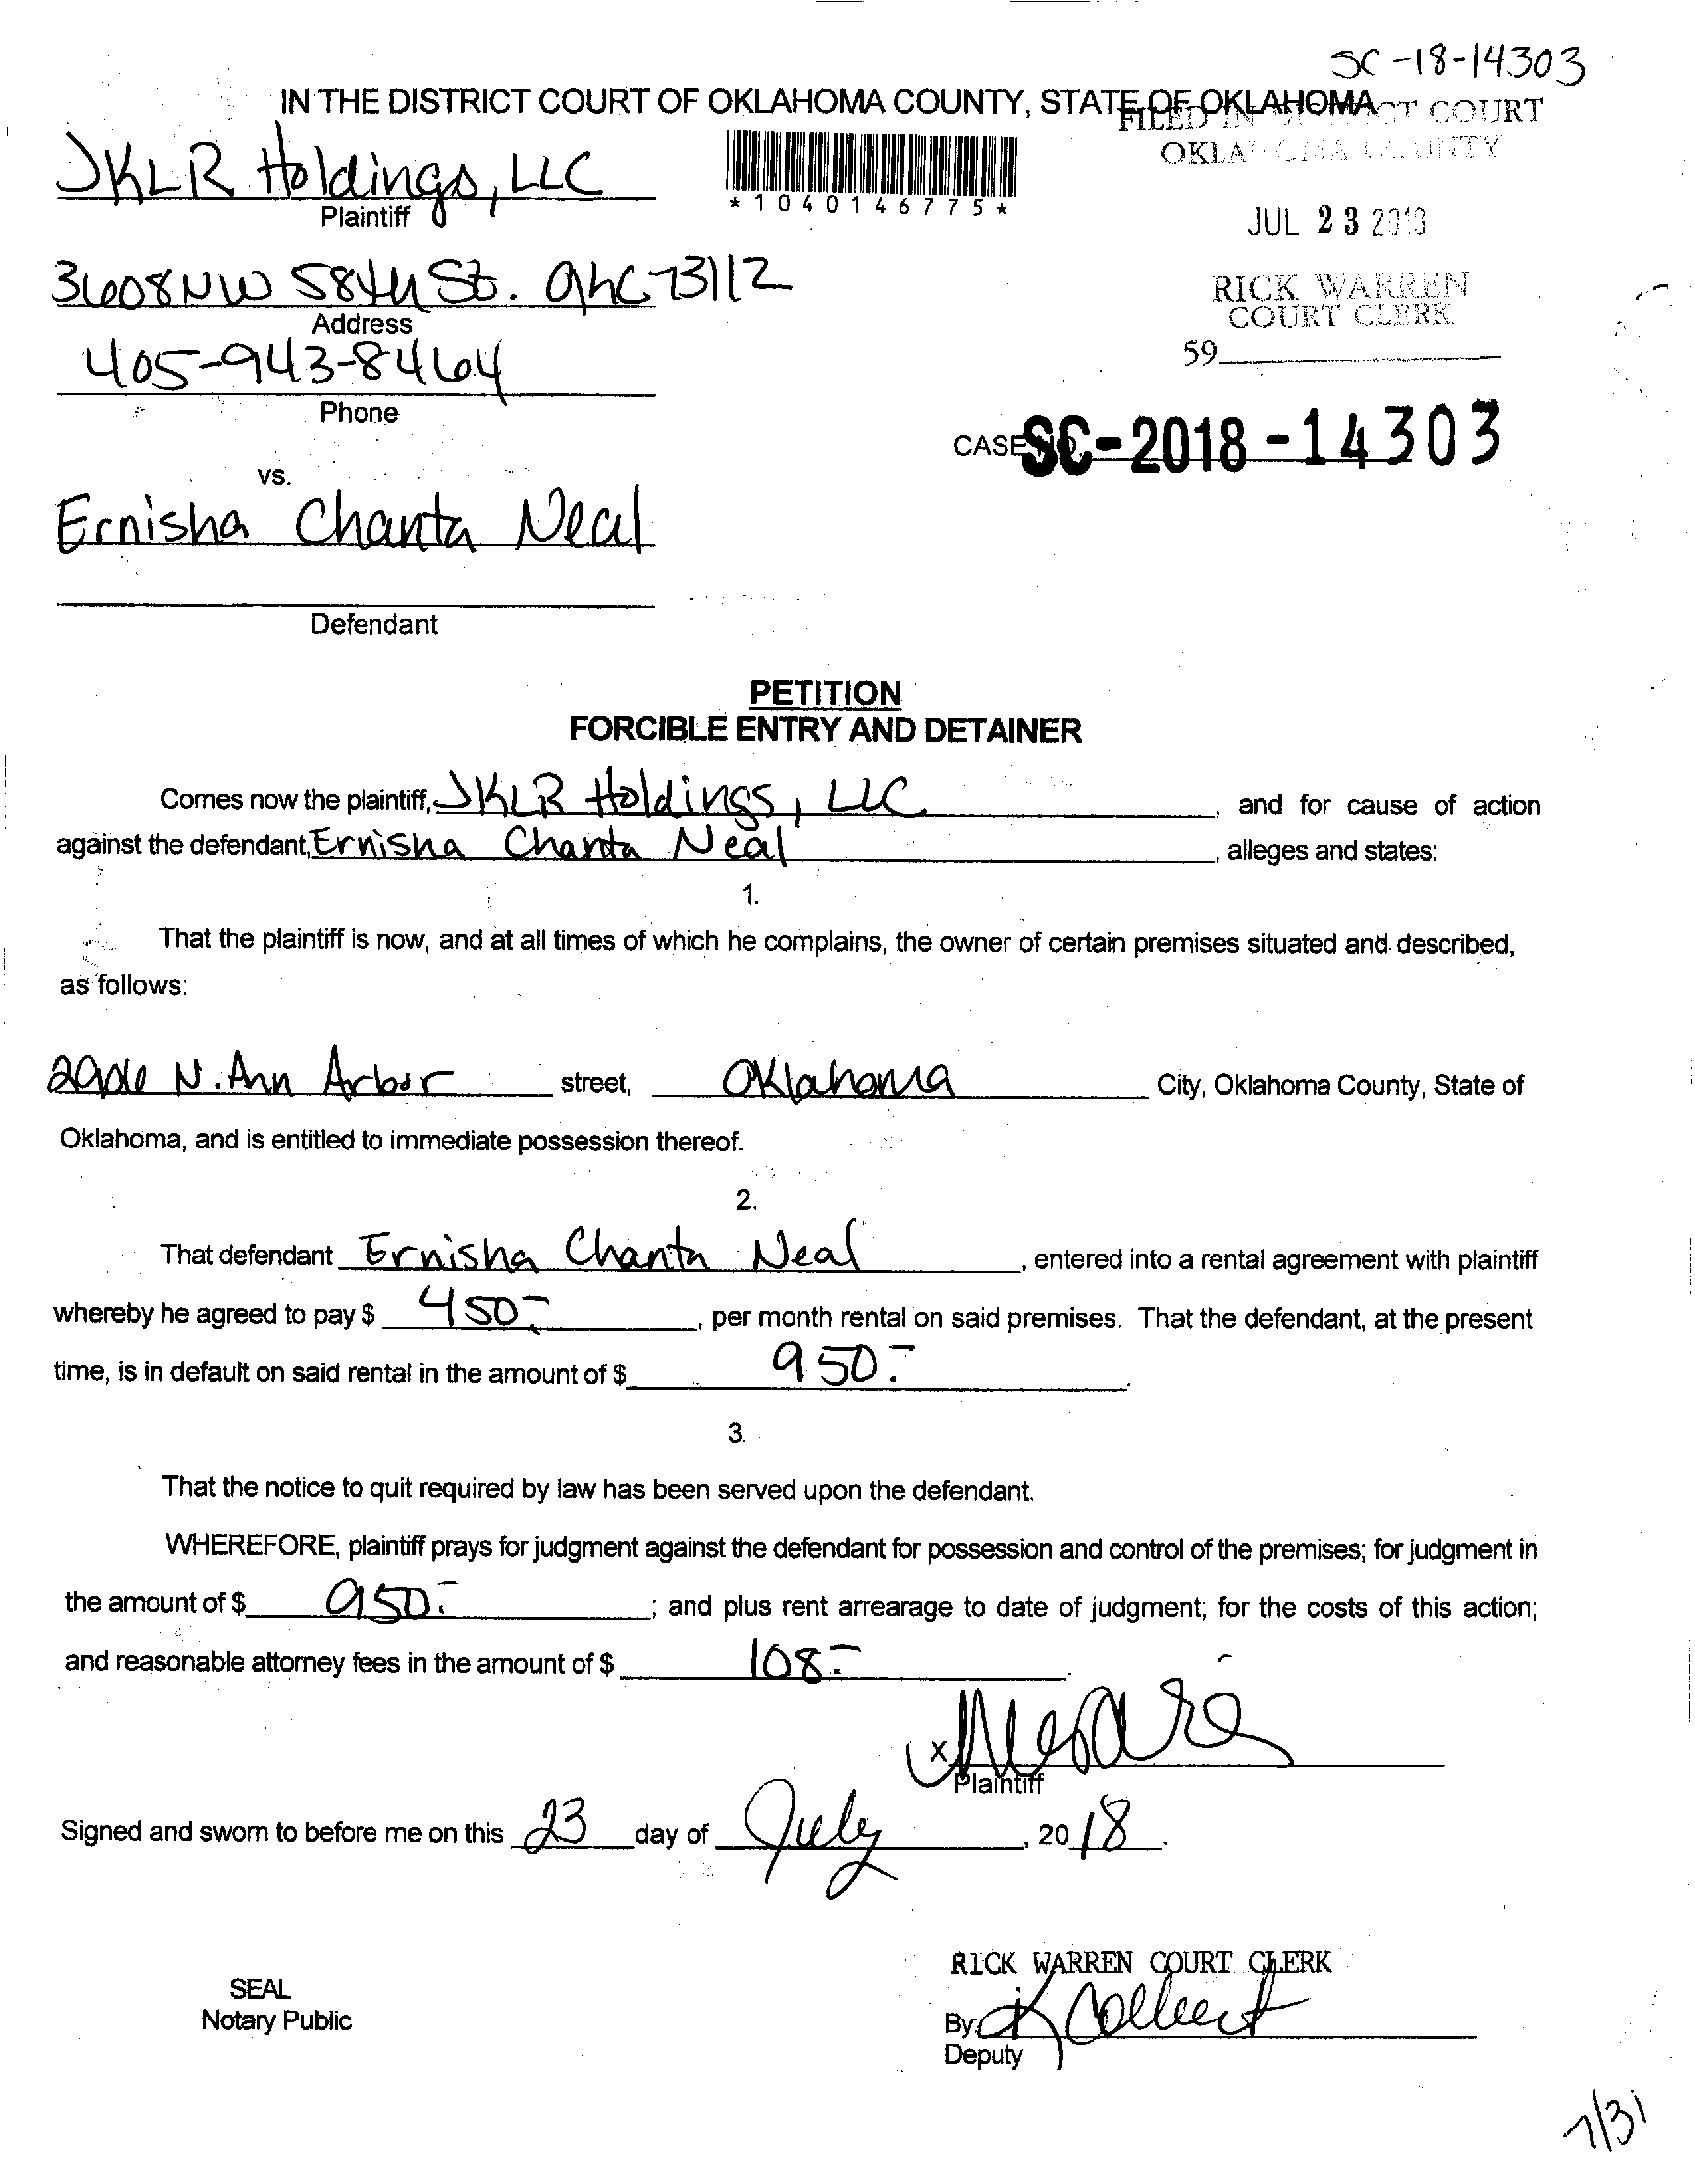 SC-18-14303
IN THE DISTRICT COURT OF OKLAHOMA COUNTY, STATE OF OKLAHOMA
FILED IN COURT
JKLR Holdings, LLC
Plaintiff
*1040146775*
JUL 23 2018
3608 NW 58th St. OKC 73112
Address
RICK WARREN
COURT CLERK
405-943-8464
59
Phone
CASE NO. SC-2018-14303
vs.
Ernisha Chanta Neal
Defendant
PETITION
FORCIBLE ENTRY AND DETAINER
Comes now the plaintiff, JKLR Holdings, LLC, and for cause of action
against the defendant, Ernisha Chanta Neal, alleges and states:
1.
That the plaintiff is now, and at all times of which he complains, the owner of certain premises situated and described,
as follows:
N. Ann Arbor street, Oklahoma City, Oklahoma County, State of
Oklahoma, and is entitled to immediate possession thereof.
2.
That defendant Ernisha Chanta Neal, entered into a rental agreement with plaintiff
whereby he agreed to pay $ 450.-, per month rental on said premises. That the defendant, at the present
time, is in default on said rental in the amount of $ 950.-.
3.
That the notice to quit required by law has been served upon the defendant.
WHEREFORE, plaintiff prays for judgment against the defendant for possession and control of the premises; for judgment in
the amount of $ 950.-; and plus rent arrearage to date of judgment; for the costs of this action;
and reasonable attorney fees in the amount of $ 108.-.
x
Plaintiff
Signed and sworn to before me on this 23 day of July, 2018.
RICK WARREN COURT CLERK
SEAL
Notary Public
By: K Colbert
Deputy
7/31